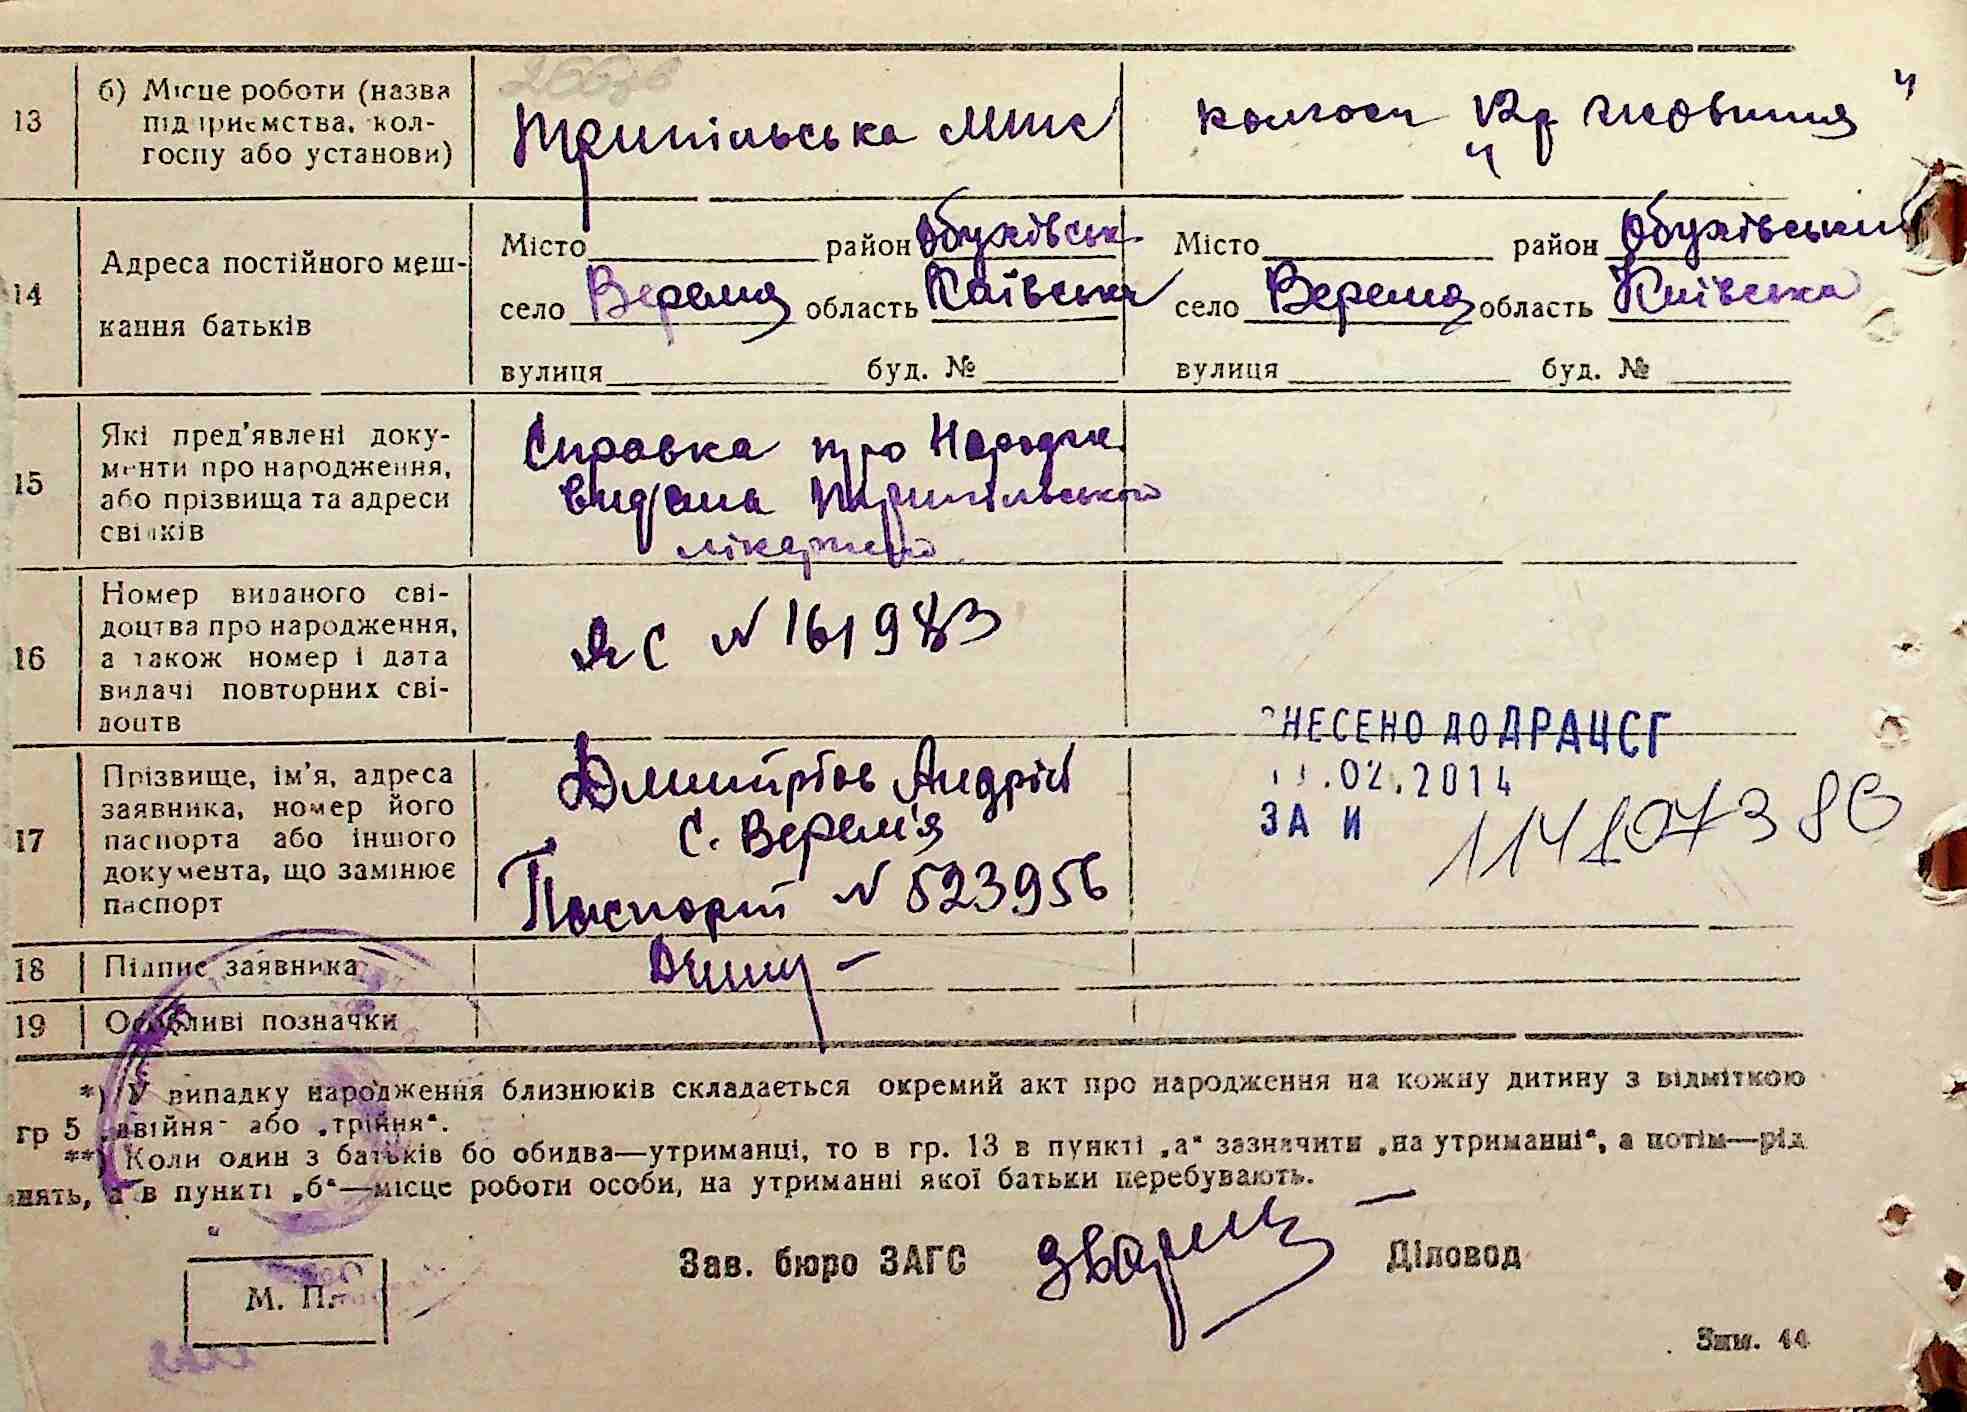 13
б) Місце роботи (назва
підприємства, кол-
госпу або установи)
Трипільська МТС
колгосп "12р Жовтня"
14
Адреса постійного меш-
кання батьків
Місто район Обухівськ
село Веремя область Київська
вулиця буд. №
Місто район Обухівський
село Веремя область Київська
вулиця буд. №
15
Які пред'явлені доку-
менти про народження,
або прізвища та адреси
свідків
Справка про Народж
видана Трипільською
лікарнею
16
Номер виданого сві-
доцтва про народження,
а також номер і дата
видачі повторних сві-
доцтв
ЯС № 161983
17
Прізвище, ім'я, адреса
заявника, номер його
паспорта або іншого
документа, що замінює
паспорт
Дмитрієв Андрій
С. Верем'я
Паспорт № 523956
ВНЕСЕНО ДО ДРАЦСГ
.02.2014
ЗА №
18
Підпис заявника
19
Особливі позначки
*) У випадку народження близнюків складається окремий акт про народження на кожну дитину з відміткою
гр 5 „двійня" або „трійня".
**) Коли один з батьків бо обидва—утриманці, то в гр. 13 в пункті „а" зазначити „на утриманні", а потім—рід
нять, а в пункті „б"—місце роботи особи, на утриманні якої батьки перебувають.
Зав. бюро ЗАГС
Діловод
М. П.
Зам. 44